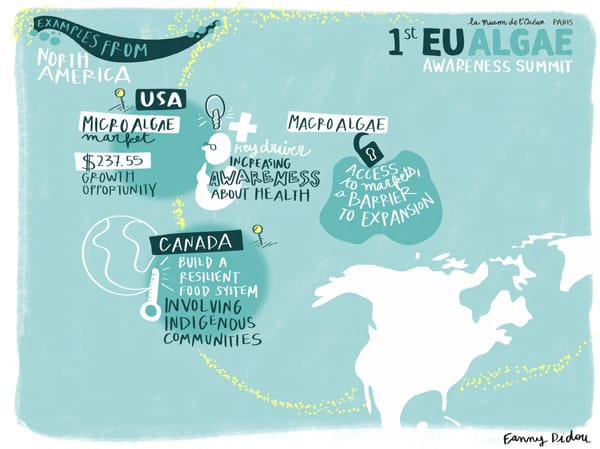 EXAMPLES FROM
NORTH
AMERICA
la Maison de l'Océan PARIS
1st EU ALGAE
AWARENESS SUMMIT
USA
MICROALGAE
market
$237.55
GROWTH
OPPORTUNITY
key driver
INCREASING
AWARENESS
ABOUT HEALTH
MACROALGAE
ACCESS
to markets,
a BARRIER
TO EXPANSION
CANADA
BUILD A
RESILIENT
FOOD SYSTEM
INVOLVING
INDIGENOUS
COMMUNITIES
Fanny Didou.